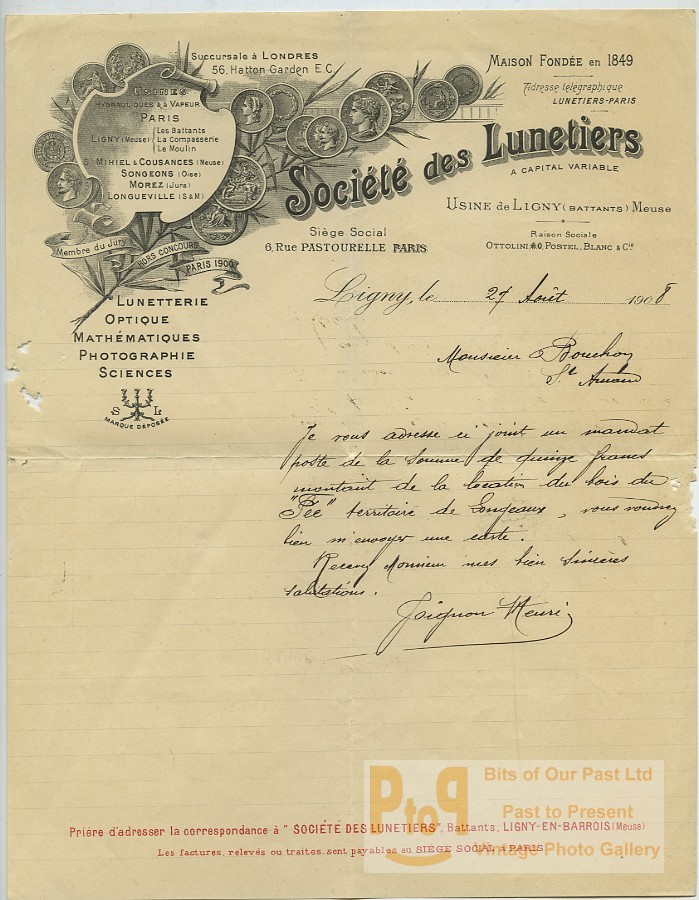 Succursale à LONDRES
56, Hatton Garden E.C.
MAISON FONDÉE en 1849
Adresse télégraphique
LUNETIERS-PARIS
USINES
HYDRAULIQUES & à VAPEUR
PARIS
LIGNY (Meuse)
Les Battants
La Compasserie
Le Moulin
St MIHIEL & COUSANCES (Meuse)
SONGEONS (Oise)
MOREZ (Jura)
LONGUEVILLE (S & M)
Société des Lunetiers
A CAPITAL VARIABLE
USINE de LIGNY (BATTANTS) Meuse
Siège Social
6, Rue PASTOURELLE PARIS
Raison Sociale
OTTOLINI, POSTEL, BLANC & Cie
Membre du Jury
HORS CONCOURS
PARIS 1900
LUNETTERIE
OPTIQUE
MATHÉMATIQUES
PHOTOGRAPHIE
SCIENCES
S L
MARQUE DÉPOSÉE
Ligny, le 27 Août 1908
Monsieur Bouchon
St Amand
Je vous adresse ci joint un mandat
poste de la somme de quinze francs
montant de la location du bois du
"Fée" territoire de Longeaux, vous voudrez
bien m'envoyer une carte.
Recevez Monsieur mes bien sincères
salutations.
Joignon Henri
PtoP
Bits of Our Past Ltd
Past to Present
Vintage Photo Gallery
Prière d'adresser la correspondance à "SOCIÉTÉ DES LUNETIERS", Battants, LIGNY-EN-BARROIS (Meuse)
Les factures, relevés ou traites, sont payables au SIÈGE SOCIAL à PARIS